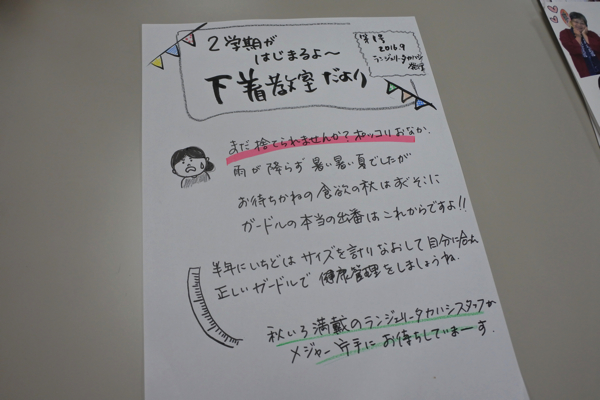 2学期が
はじまるよ〜
下着教室だより
第1号
2016.9
ランジェリータカハシ
まだ捨てられませんか?ポッコリおなか、
雨が降らず暑い暑い夏でしたが
お待ちかねの食欲の秋はすぐそこに
ガードルの本当の出番はこれからですよ!!
半年にいちどはサイズを計りなおして自分に合った
正しいガードルで健康管理をしましょうね。
秋いろ満載のランジェリータカハシスタッフが
メジャー片手にお待ちしていまーす.